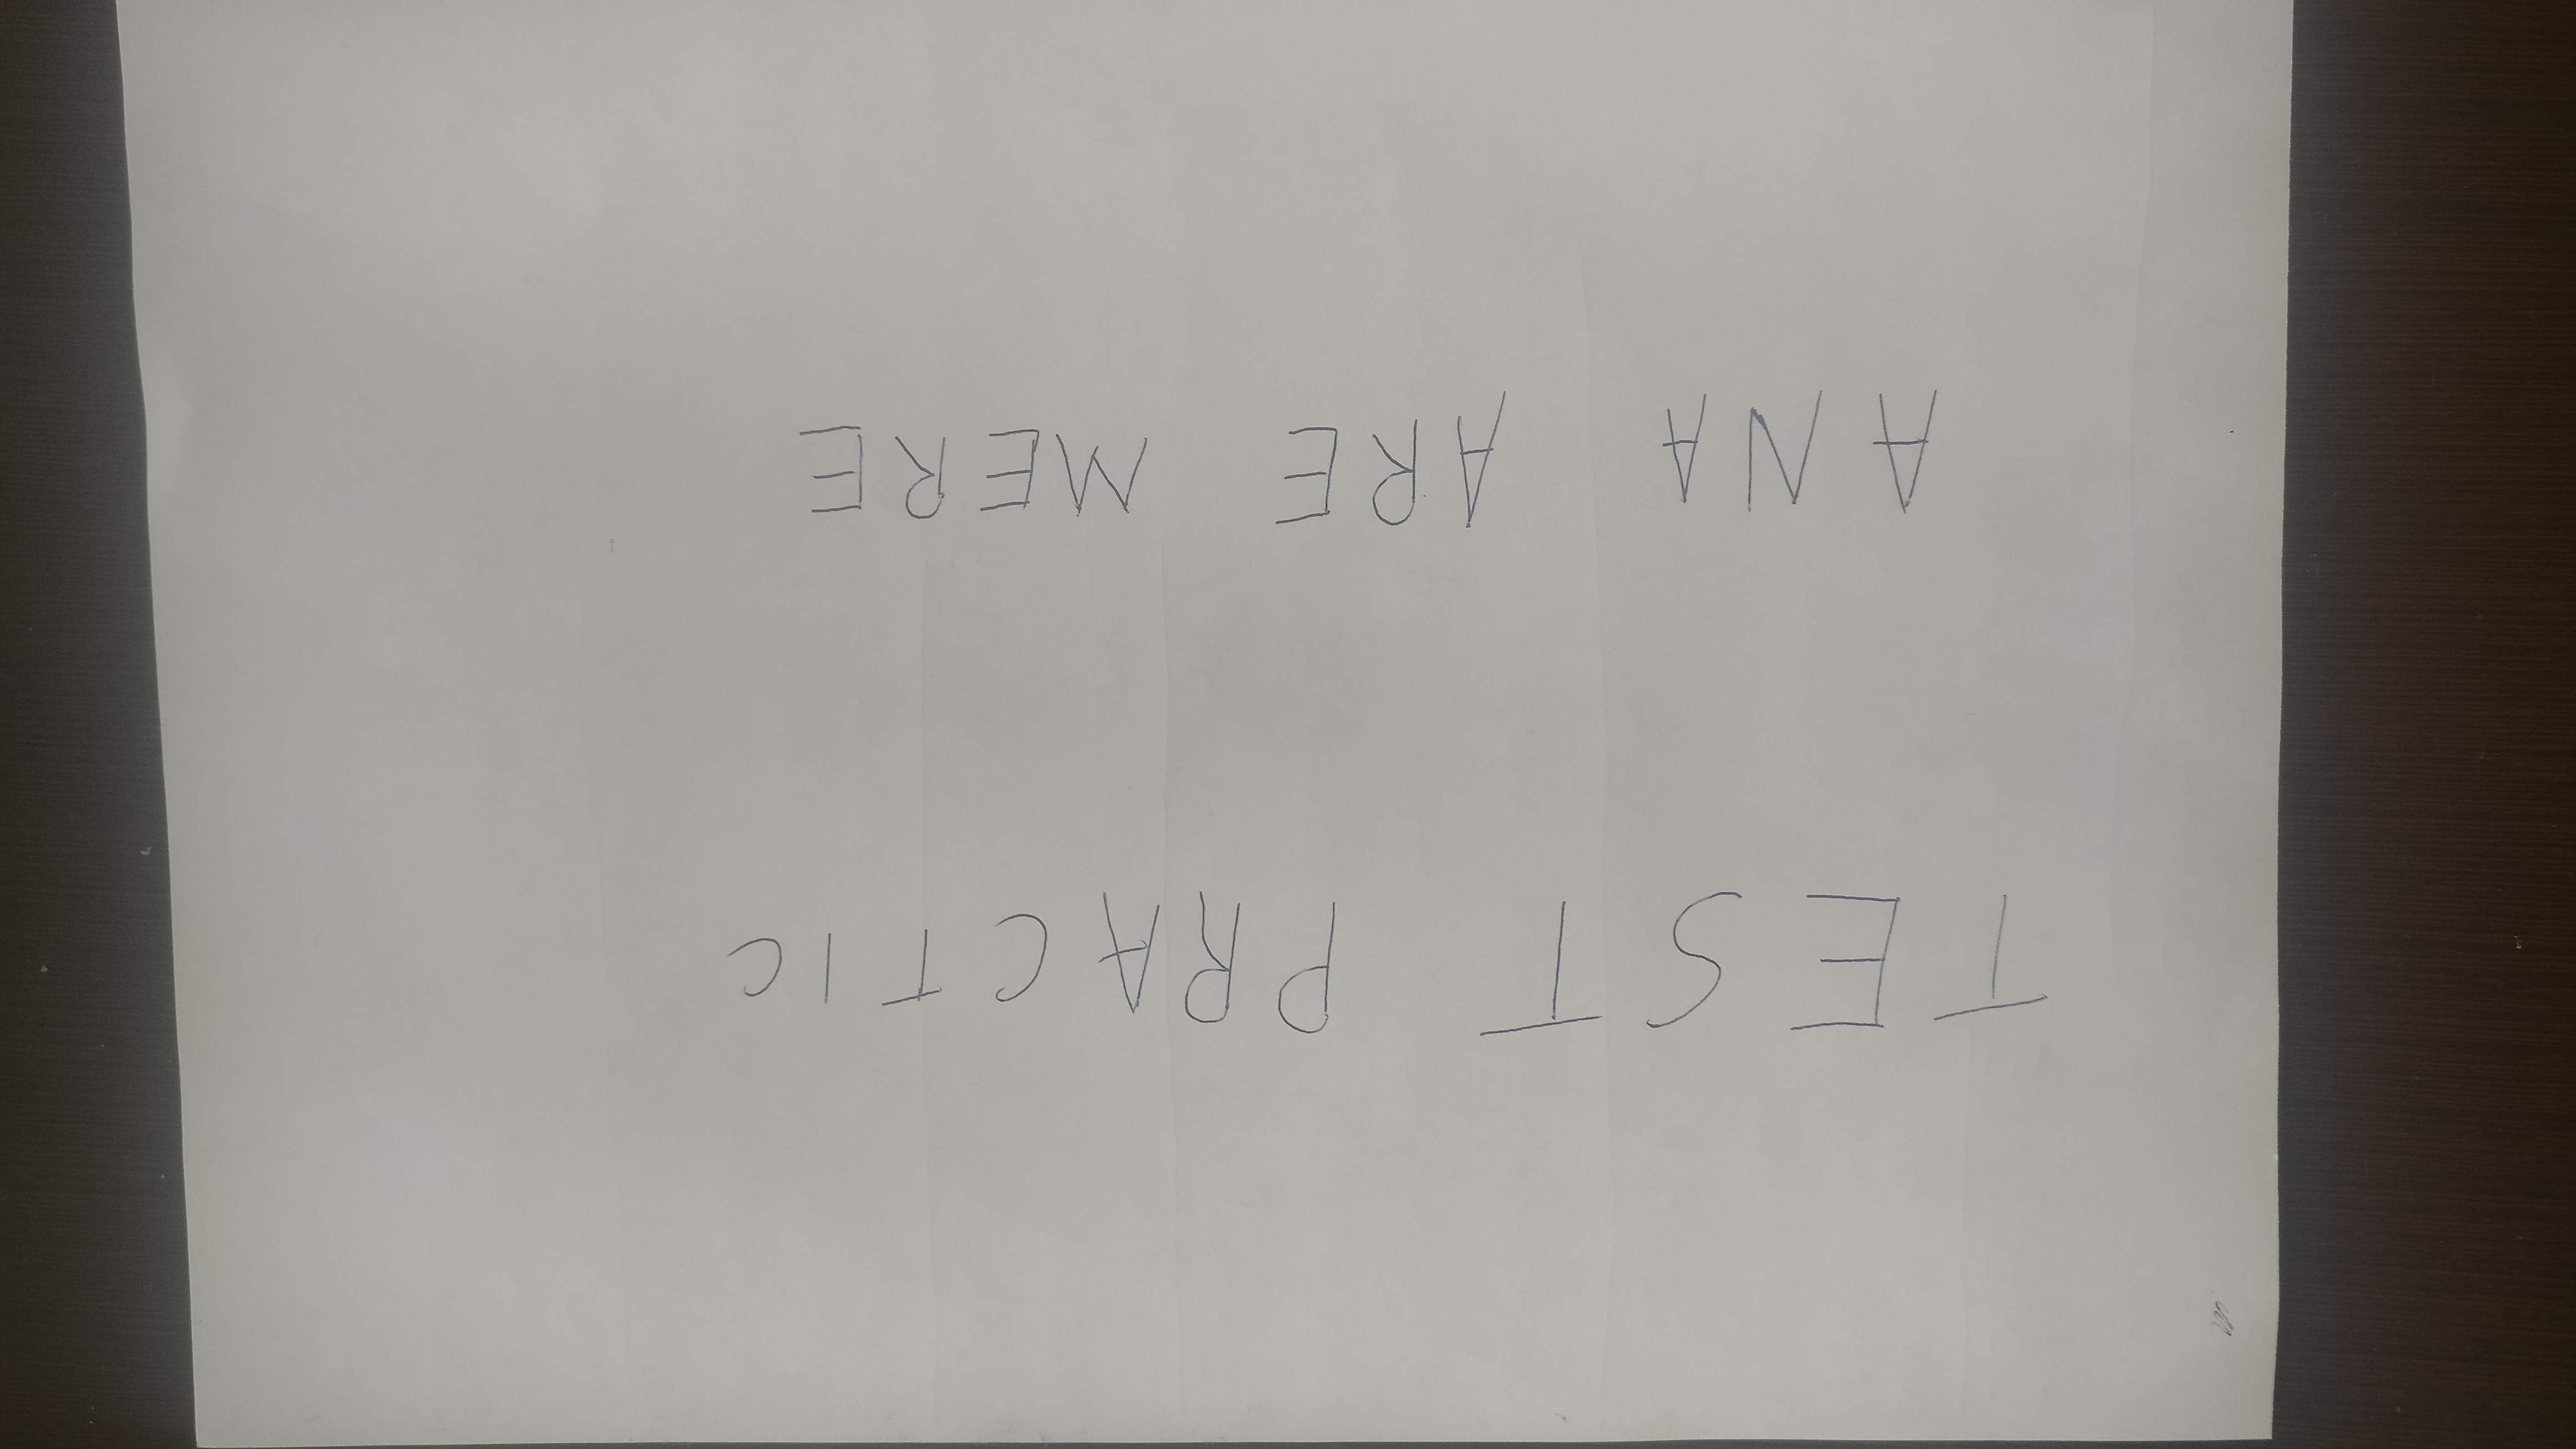 TEST PRACTIC
ANA ARE MERE